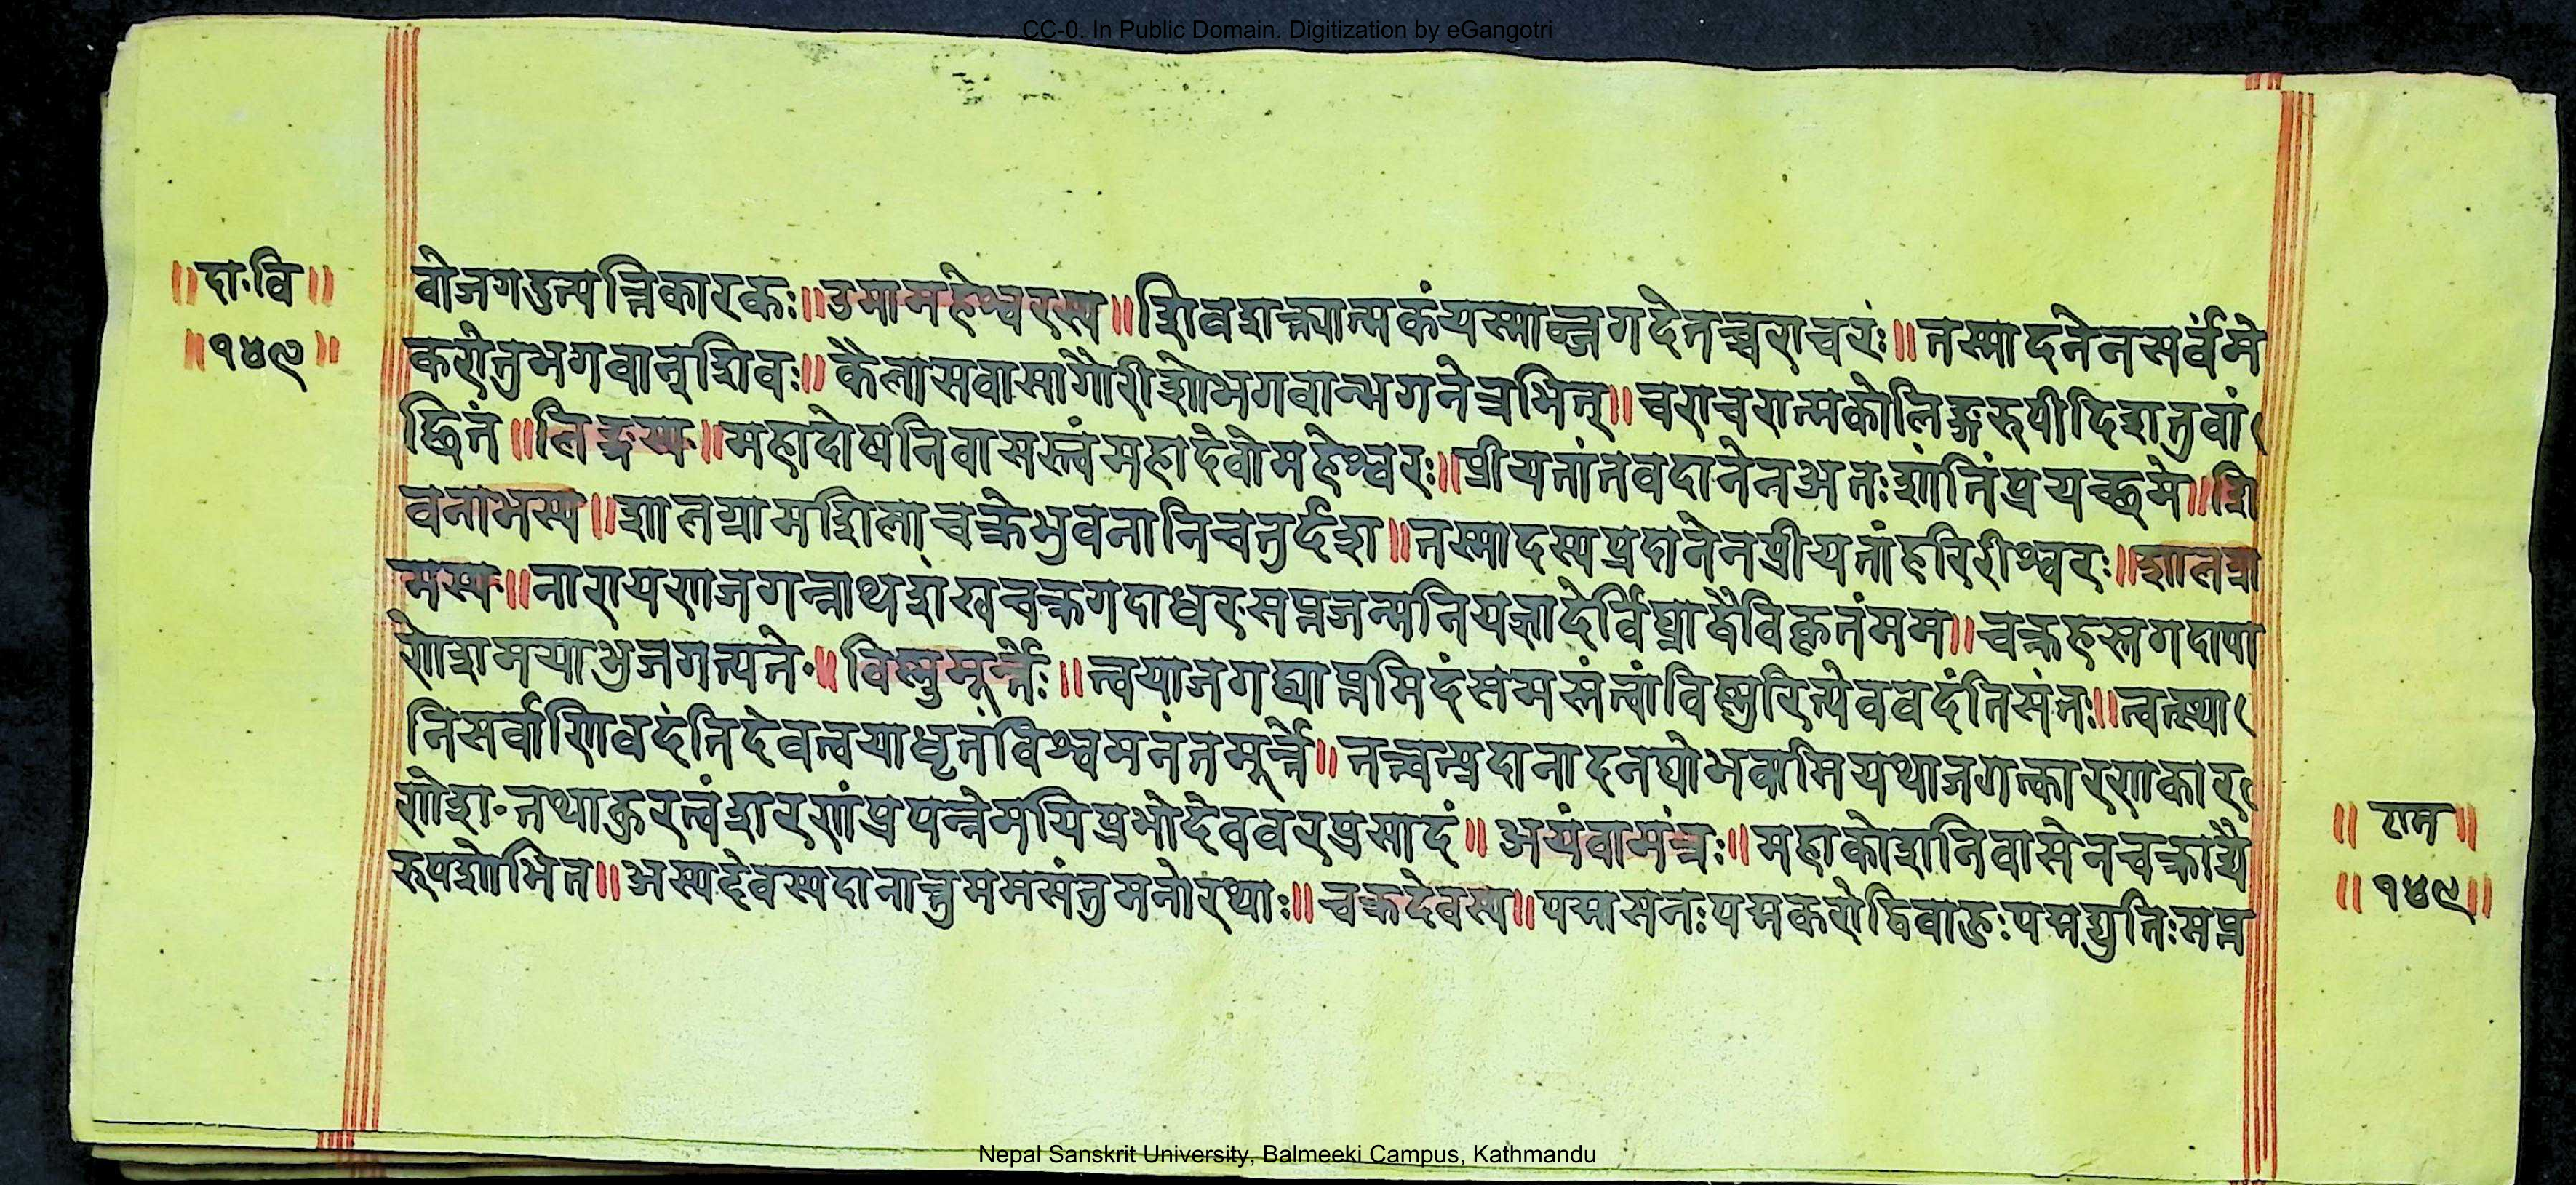 CC-0. In Public Domain. Digitization by eGangotri
॥दा॰वि॥
॥१४९॥
वोजगदुत्पत्तिकारकः॥उमामहेश्वरस्य॥शिवशक्त्यात्मकंयस्माज्जगदेतच्चराचरं॥तस्मादनेनसर्वंमे
करोतुभगवान्शिवः॥कैलासवासागौरीशोभगवान्भगनेत्रभित्॥चराचरात्मकोलिङ्गरुपीदिशतुवां
छितं॥लिङ्गस्य॥महादोषनिवासस्त्वंमहादेवोमहेश्वरः॥प्रीयतांतवदानेनअतःशांतिंप्रयच्छमे॥शि
वनाभस्य॥शालग्रामशिलाचक्रेभुवनानिचतुर्दश॥तस्मादस्यप्रदानेनप्रीयतांहरिरीश्वरः॥शालग्रा
मस्य॥नारायणजगन्नाथशंखचक्रगदाधर॰सप्तजन्मनियज्ञादेर्विघ्नाद्वैविकृतंमम॥चक्रहस्तगदापा
णेशमयाभुजगत्पते॰॥विष्णुमूर्त्तेः॥त्वयाजगद्व्याप्तमिदंसमस्तंत्वांविष्णुरित्येववदंतिसंतः॥त्वत्स्था
निसर्वाणिवदंतिदेवत्वयाधृतंविश्वमनंतमूर्त्ते॥तत्त्वत्प्रदानादनघोभवामियथाजगत्कारणकार
णेश॰तथाकुरत्वंशरणंप्रपन्नेमयिप्रभोदेववरप्रसादं॥अयंवामंत्रः॥महाकोशनिवासेनचक्राद्यै
रुपशोभित॥अस्यदेवस्यदानात्तुममसंतुमनोरथाः॥चक्रदेवस्य॥पद्मासनःपद्मकरोद्विबाहुःपद्मद्युतिःसप्त
॥राम॥
॥१४९॥
Nepal Sanskrit University, Balmeeki Campus, Kathmandu